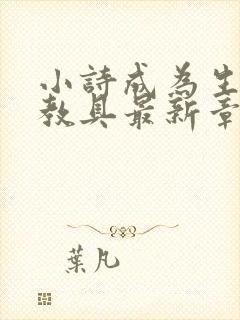 小詩成為生
教具最新章
葉凡